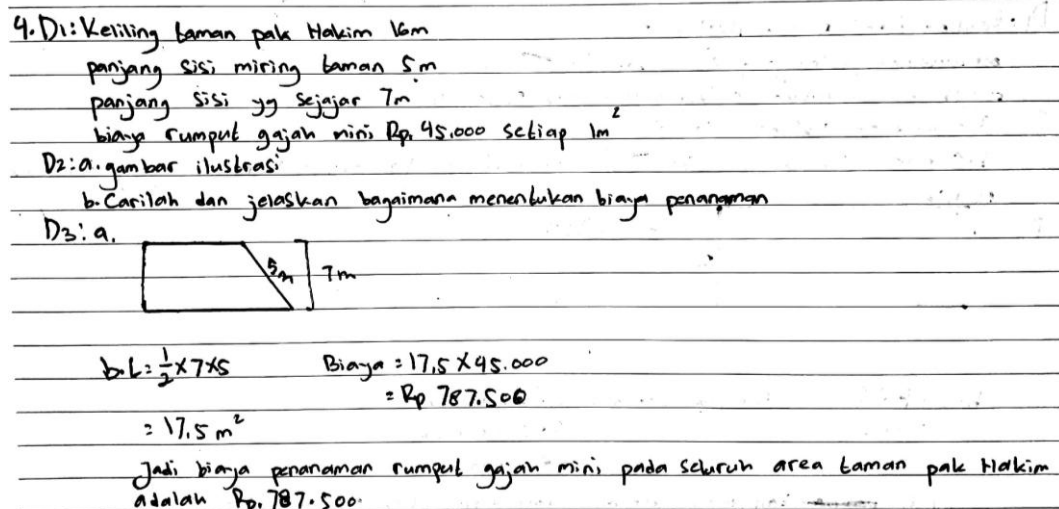 4. D1: Keliling taman pak Hakim 16m
panjang sisi miring taman 5m
panjang sisi yg sejajar 7m
biaya rumput gajah mini Rp. 45.000 setiap 1m²
D2: a. gambar ilustrasi
b. Carilah dan jelaskan bagaimana menentukan biaya penanaman
D3: a.
5m 7m
b. L = 1/2 x 7 x 5 Biaya = 17,5 x 45.000
= Rp 787.500
= 17,5 m²
Jadi biaya penanaman rumput gajah mini pada seluruh area taman pak Hakim
adalah Rp. 787.500.